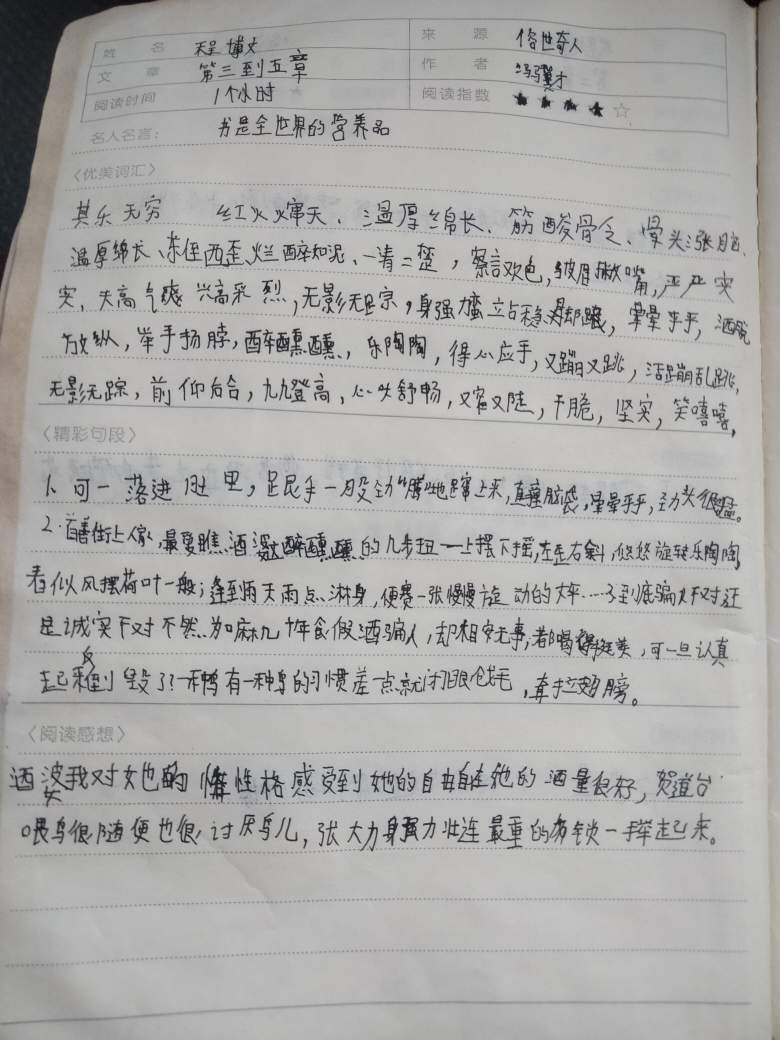 姓 名 程博文 来 源 俗世奇人
文 章 第三到五章 作 者 冯骥才
阅读时间 1个小时 阅读指数 ★★★★☆
名人名言： 书是全世界的营养品
〈优美词汇〉
其乐无穷 红火爆天、温厚绵长、筋酸骨乏、骨头涨脑、
温厚绵长、东侄西歪、烂醉如泥、一清二楚，察言欢色，皱眉撇嘴，严严实
实，天高气爽 兴高采烈，无影无踪，身强力蛮立占稳，晕晕乎乎，洒脱
放纵，举手扬脖，醉醺醺，乐陶陶，得心应手，又蹦又跳，活蹦乱跳，
无影无踪，前仰后合，九九登高，心火舒畅，又窄又陡，干脆，坚实，笑嘻嘻，
〈精彩句段〉
1、可一落进肚里，跟手一股劲"腾"地蹿上来，直撞脑袋，晕晕乎乎，劲头很猛。
2.首善街上人家，最爱瞧酒婆醉醺醺的几步扭——上摆下摇，左歪右斜，悠悠旋转乐陶陶，
看似风摆荷叶一般；逢到雨天雨点淋身，便赛一张慢慢旋动的大伞……3到底骗人不对还
是诚实不对不然为嘛几十年食假酒骗人，却相安无事，都喝得挺美，可一旦认真
起来反到毁了？一种鸟有一种鸟的习惯差一点就闭眼戗毛，耷拉翅膀。
〈阅读感想〉
酒婆我对女也的性格感受到她的自由自在她的酒量很好，贺道台
喂鸟很随便也很讨厌鸟儿，张大力身强力壮连最重的石锁一手举起来。